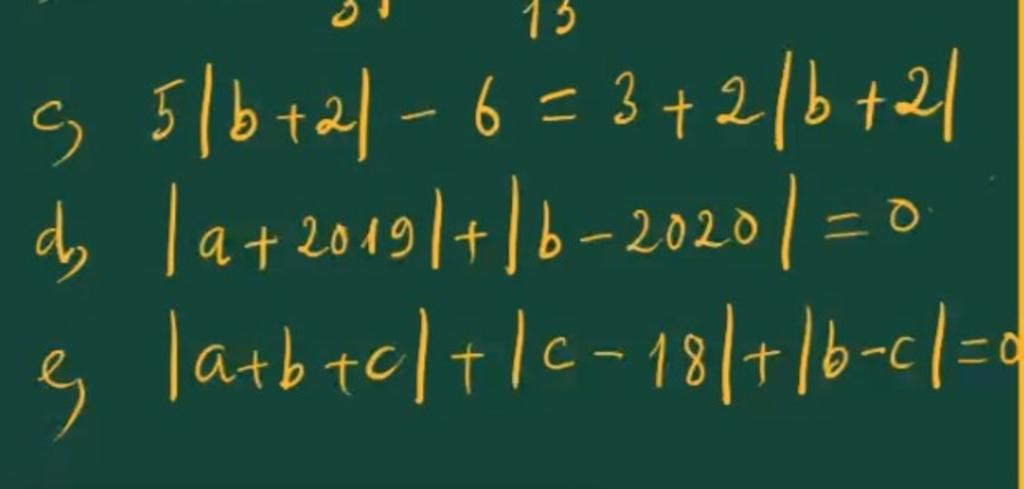 c, 5|b+2| - 6 = 3 + 2|b+2|
d, |a+2019|+|b-2020| = 0
e, |a+b+c| + |c-18|+|b-c|=0